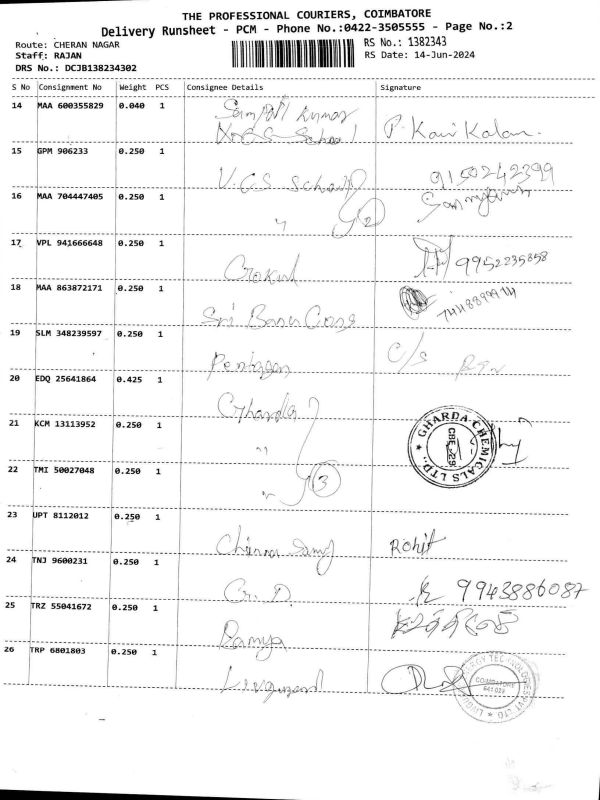 THE PROFESSIONAL COURIERS, COIMBATORE
Delivery Runsheet - PCM - Phone No.:0422-3505555 - Page No.:2
Route: CHERAN NAGAR
RS No.: 1382343
Staff: RAJAN
RS Date: 14-Jun-2024
DRS No.: DCJB138234302
S No Consignment No Weight PCS Consignee Details Signature
14 MAA 600355829 0.040 1 Kumar
School P. Kavi Kalan.
15 GPM 906233 0.250 1
V.G.S School 9150242399
16 MAA 704447405 0.250 1
" 2
17 VPL 941666648 0.250 1
Crokul 9952235858
18 MAA 863872171 0.250 1
Sri 
19 SLM 348239597 0.250 1
Pentagon C/s
20 EDQ 25641864 0.425 1
Gharda
21 KCM 13113952 0.250 1
" GHARDA CHEMICALS LTD., CBE-29
22 TMI 50027048 0.250 1
" 3
23 UPT 8112012 0.250 1
Rohit
24 TNJ 9600231 0.250 1
G. D. 9943886087
25 TRZ 55041672 0.250 1
Ramya
26 TRP 6801803 0.250 1
COIMBATORE
641 029